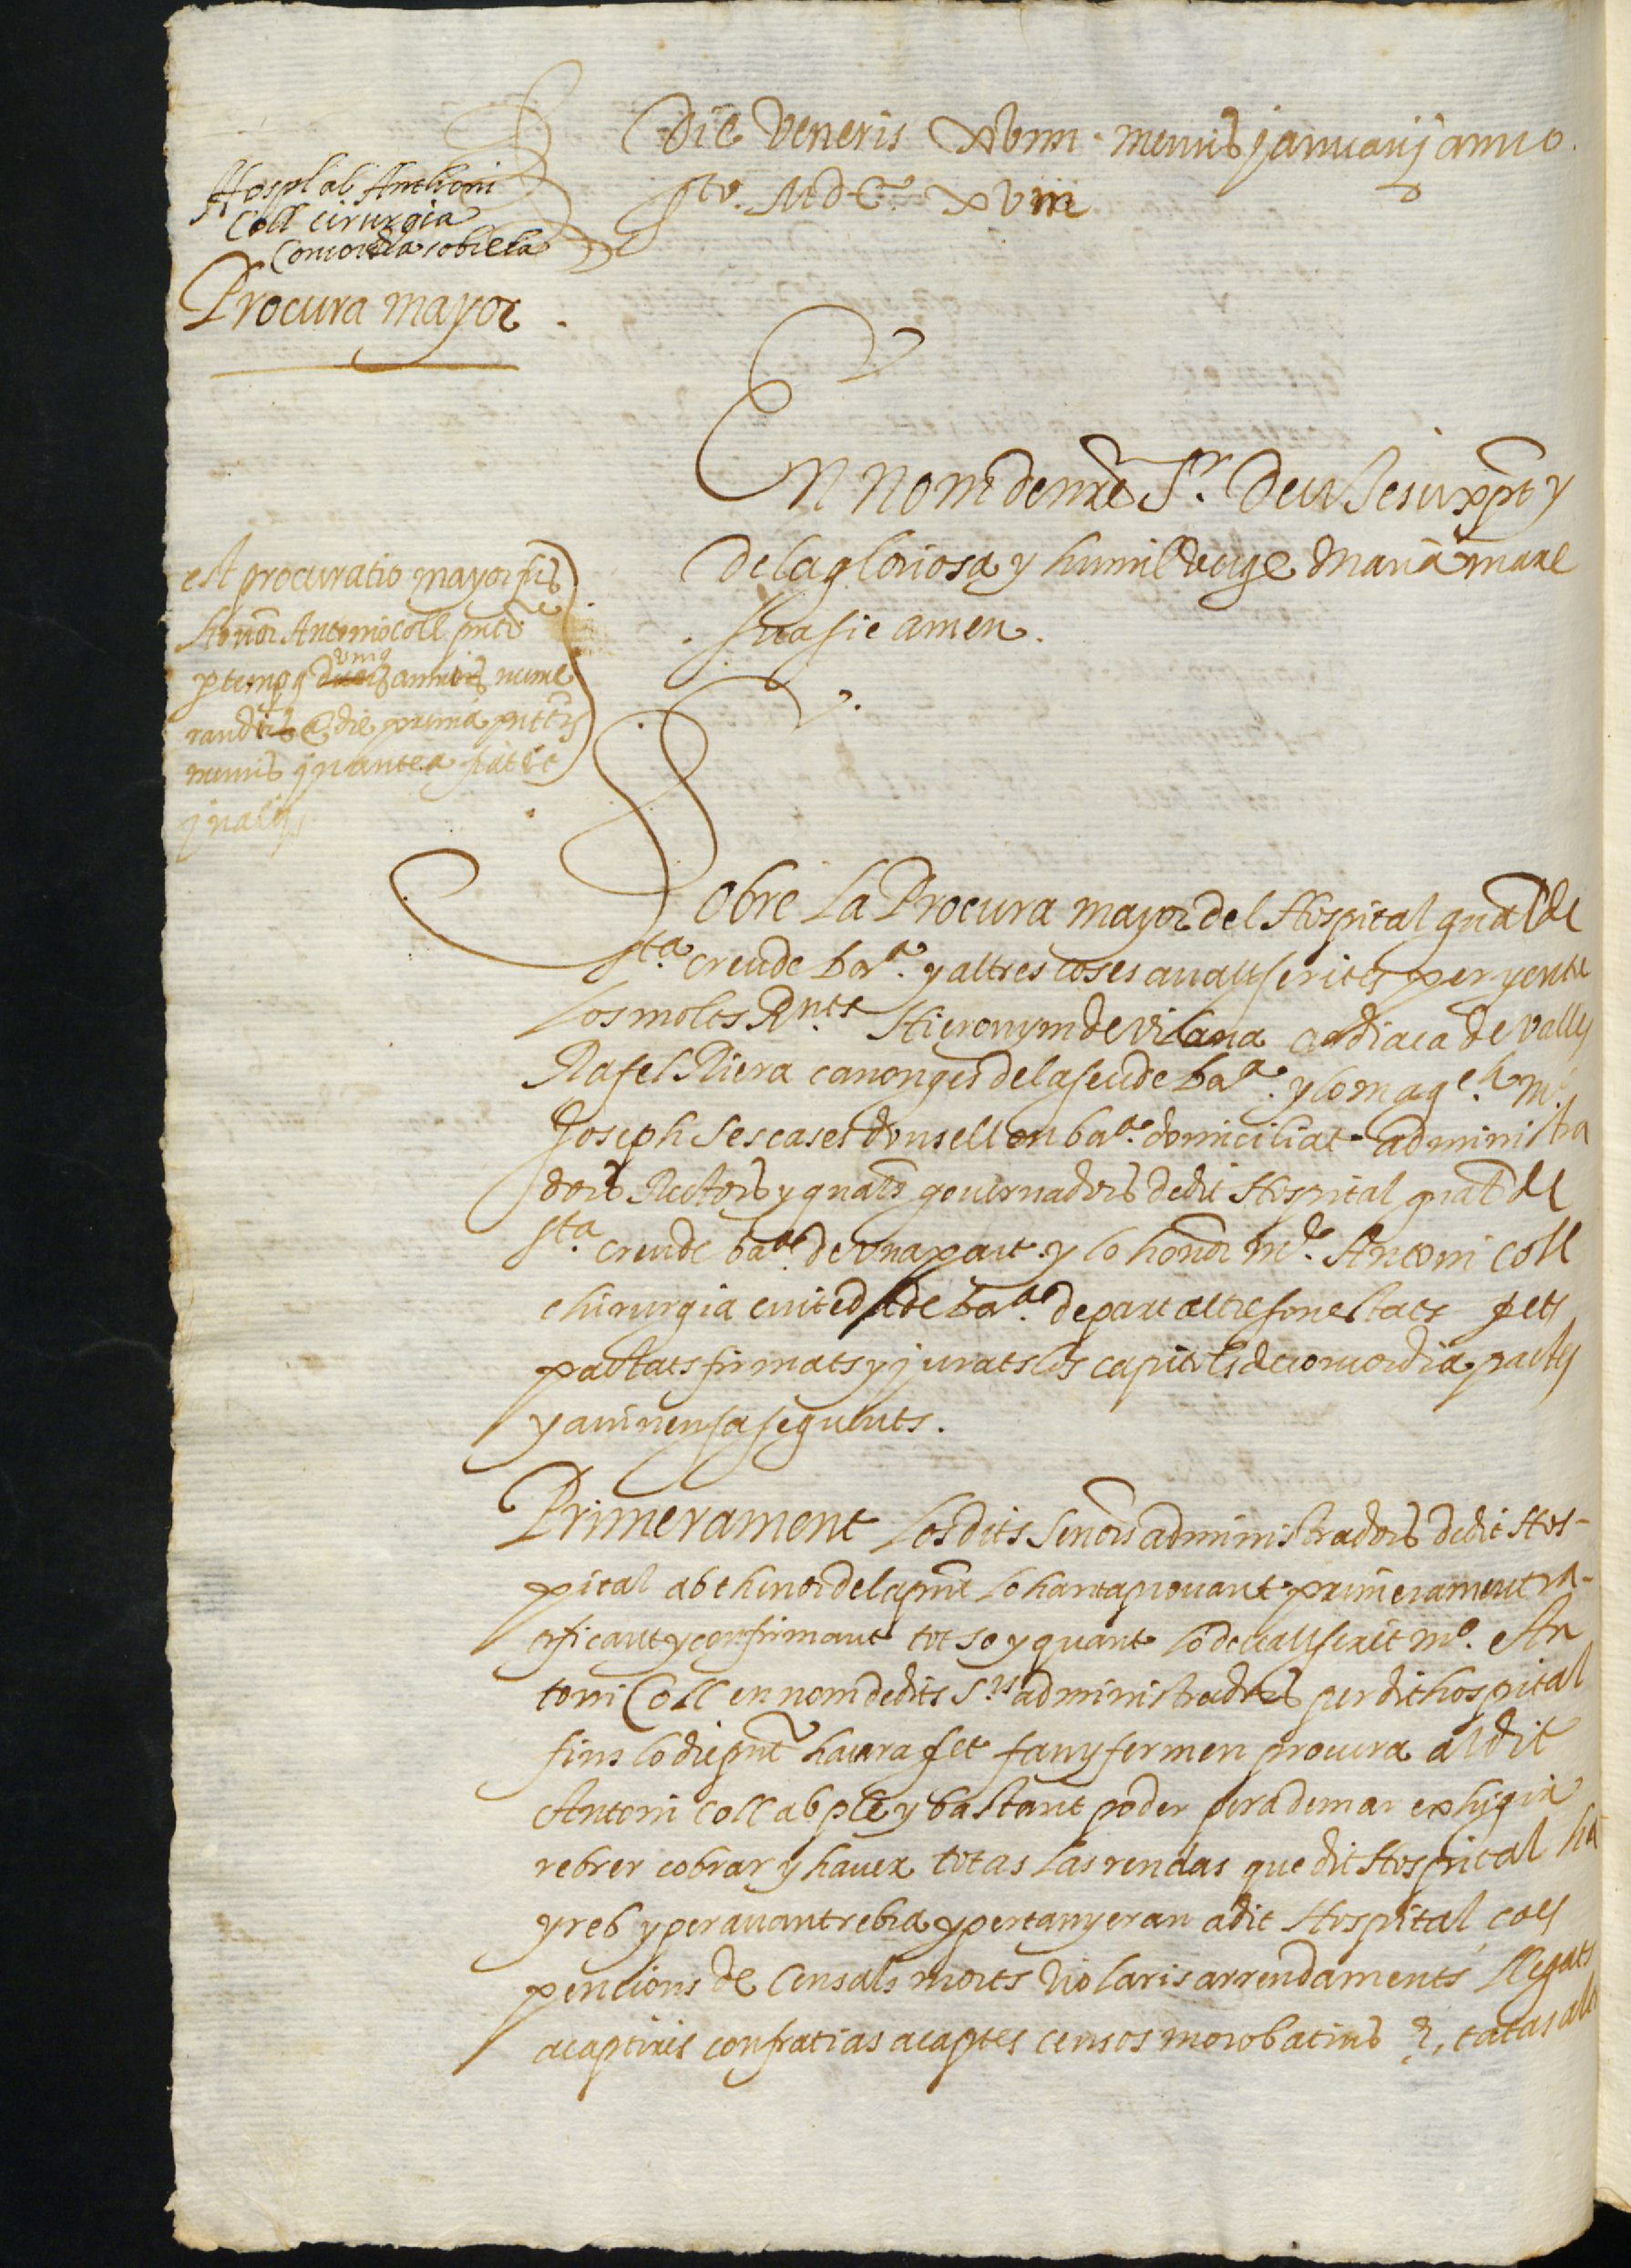 Die Veneris xviiii mensis januarij anno
pto. MDC xviii
Hospl ab Anthoni
Coll cirurgia
Concordia sobre la
Procura mayor.
En nom de nre Sr. Deu Jesuxpt y
de la gloriosa y humil verge Maria mare
sua sie amen.
est procuratio mayor
honor Antonio Coll
randis a die prima
mensis in antea
Sobre la Procura mayor del Hospital gnal de
sta. creu de bara. y altres coses avall scrites per y entre
los molts Rnts Hieronym de Vilana ardiaca de valles
Rafel Riera canonges de la seu de bara. y lo magch. mo.
Joseph Sescases donsell en bara. domiciliat administra
dors Rectors y gnals governadors de dit Hospital gnal de
sta. creu de bara. de una part y lo honor mo. Antoni Coll
chirurgia ciutedà de bara. de part altre son estats fets
pactats firmats y jurats los capitols de concordia pactes
y avinensa seguents.
Primerament los dits Senors administradors de dit Hos-
pital ab thenor de la pnt lo han aprovant primerament ra-
tificant y confirmant tot so y quant lo de avall scrit mo. An
toni Coll en nom de dits Srs administradors per dit hospital
fins lo die pnt haura fet fan y fermen procura al dit
Antoni Coll ab ple y bastant poder per ademar exhigir
rebrer cobrar y haver totas las rendas que dit Hospital ha
y reb y per avant rebra y pertanyeran a dit Hospital, coes
pencions de Censals morts violaris arrendaments llegats
acaptiris confrarias acaptes censos morobatins &, totas al